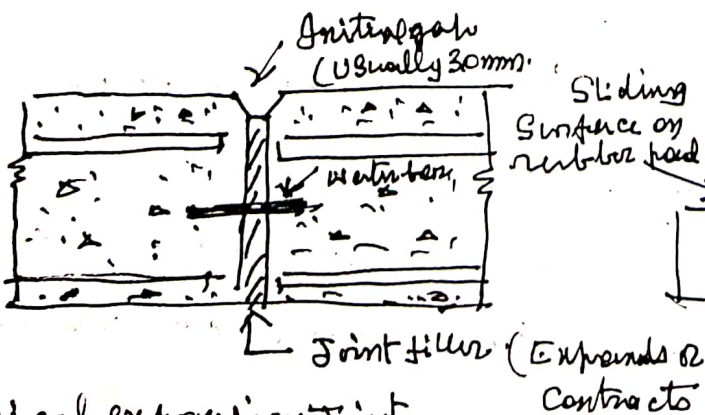 Initial gap
(Usually 30mm.
Sliding
Surface or
rubber pad
water bar,
Joint filler (Expands or
Contracts
expansion Joint